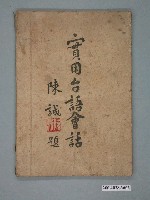 實用台語會話
陳誠題